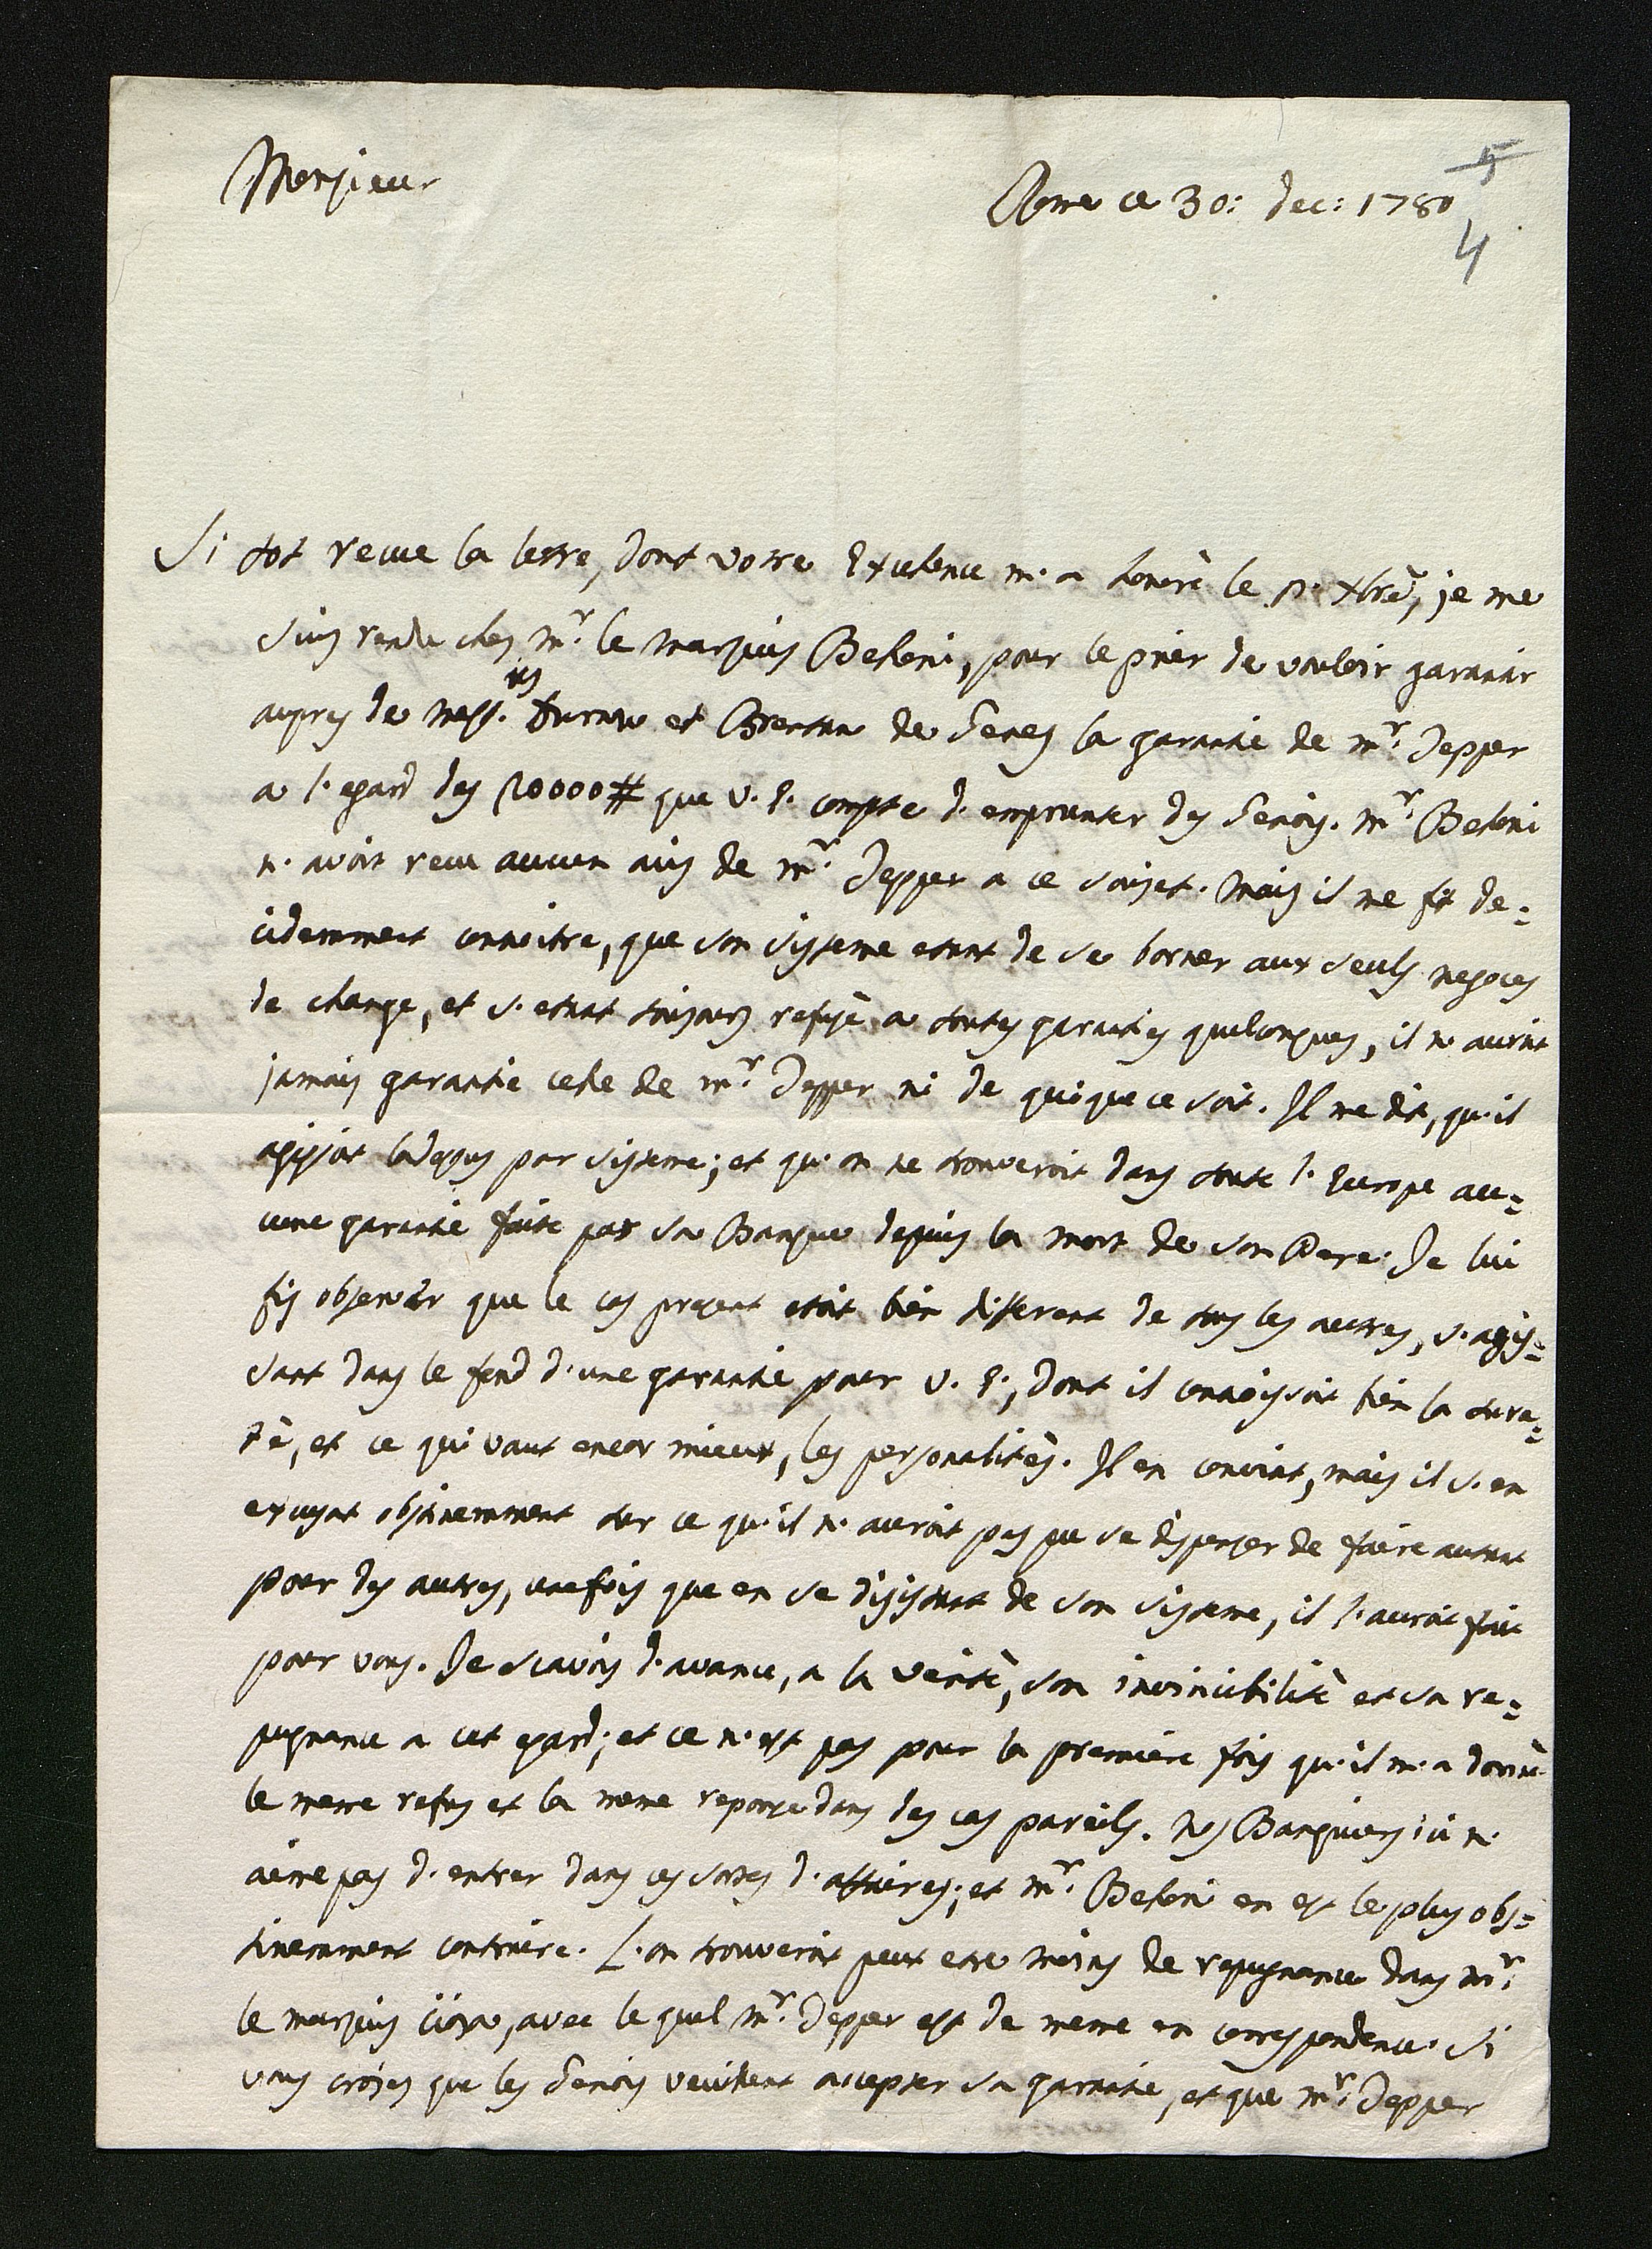 Monsieur
Rome ce 30: dec: 1780
5
4
Si tot recue la lettre, dont votre Excellence m'a honorè le p. Xbre, je me
suis rendu chez Mr. le Marquis Belloni, pour le prier de vouloir garantir
aupres de Mess.rs Durazzo et de Genes la garantie de Mr. Tepper
a l'egard des 20000# que V. E. compte d'emprunter des Genois. Mr. Belloni
n'avoit recu aucun avis de Mr. Tepper a ce soujet. Mais il me fit de=
cidemment connoitre, que son sisteme etant de se borner aux seuls negoces
de change, et s'etant toujours refusè a toutes garanties quelconques, il n'auroit
jamais garantie celle de Mr. Tepper ni de qui que ce soit. Il me dit, qu'il
agissoit ladessus par sisteme; et qu'on ne trouveroit dans toute l'Europe au=
cune garantie faite par sa Banque depuis la mort de son Pere. Je lui
fis observer que le cas present etoit bien different de tous les autres, s'agis=
sant dans le fond d'une garantie pour V. E., dont il connoissoit bien la sure=
tè, et ce qui vaut encor mieux, les personalitès. Il en convint, mais il s'en
excusat obstinemment sur ce qu'il n'auroit pas pu se dispenser de faire autant
pour des autres, une fois que en se disistant de son sisteme, il l'auroit fait
pour vous. Je scavois d'avance, a la veritè, son invincibilitè et sa re=
pugnance a cet egard; et ce n'est pas pour la premiere fois qu'il m'a donnè
le meme refus et la meme reponse dans des cas pareils. Nos Banquiers ici n'
aime pas d'entrer dans ces sortes d'affaires; et Mr. Belloni en est le plus obs=
tinemment contraire. L'on trouveroit peut etre moins de repugnance dans Mr.
le marquis avec le quel Mr. Tepper est de meme en correspondence. Si
vous croies que les Genois veuillent accepter sa garantie, et que Mr. Tepper